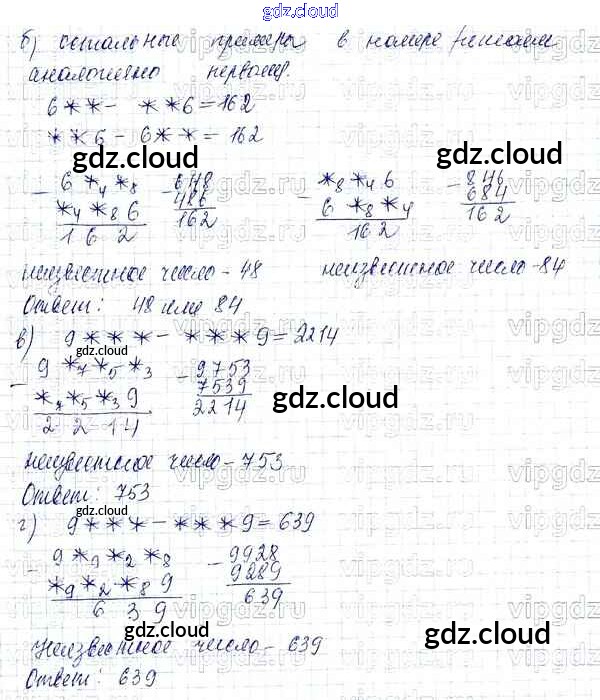 gdz.cloud
б) остальные примеры в номере решаем
аналогично первому.
6** - **6 = 162
**6 - 6** = 162
gdz.cloud gdz.cloud
- 6 *₄ *₈ - 648 - *₈ *₄ 6 - 846
*₄ *₈ 6 486 6 *₈ *₄ 684
1 6 2 162 162 162
неизвестное число - 48 неизвестное число - 84
Ответ: 48 или 84
в) 9*** - ***9 = 2214
gdz.cloud
- 9 *₇ *₅ *₃ - 9753
*₇ *₅ *₃ 9 7539 gdz.cloud
2 2 1 4 2214
неизвестное число - 753
Ответ: 753
gdz.cloud
г) 9*** - ***9 = 639
- 9 *₉ *₂ *₈ - 9928
*₉ *₂ *₈ 9 9289
6 3 9 639
gdz.cloud gdz.cloud
Неизвестное число - 639
Ответ: 639
gdz.cloud